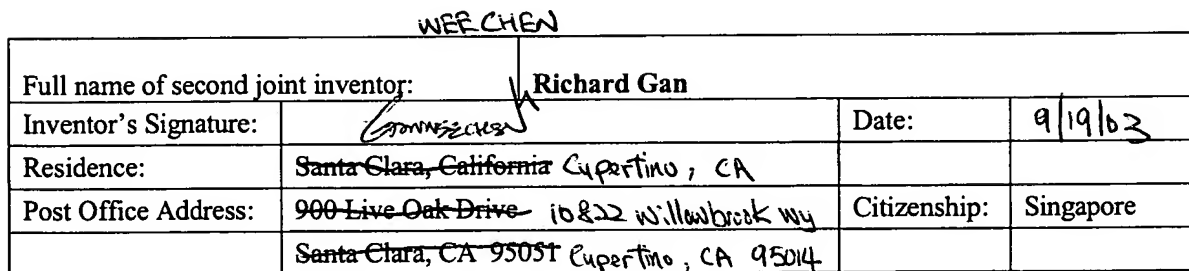 WEE CHEN
Full name of second joint inventor: Richard Gan
Inventor's Signature: Date: 9/19/03
Residence: Santa Clara, California Cupertino, CA
Post Office Address: 900 Live Oak Drive 10822 Willowbrook Wy Citizenship: Singapore
Santa Clara, CA 95051 Cupertino, CA 95014